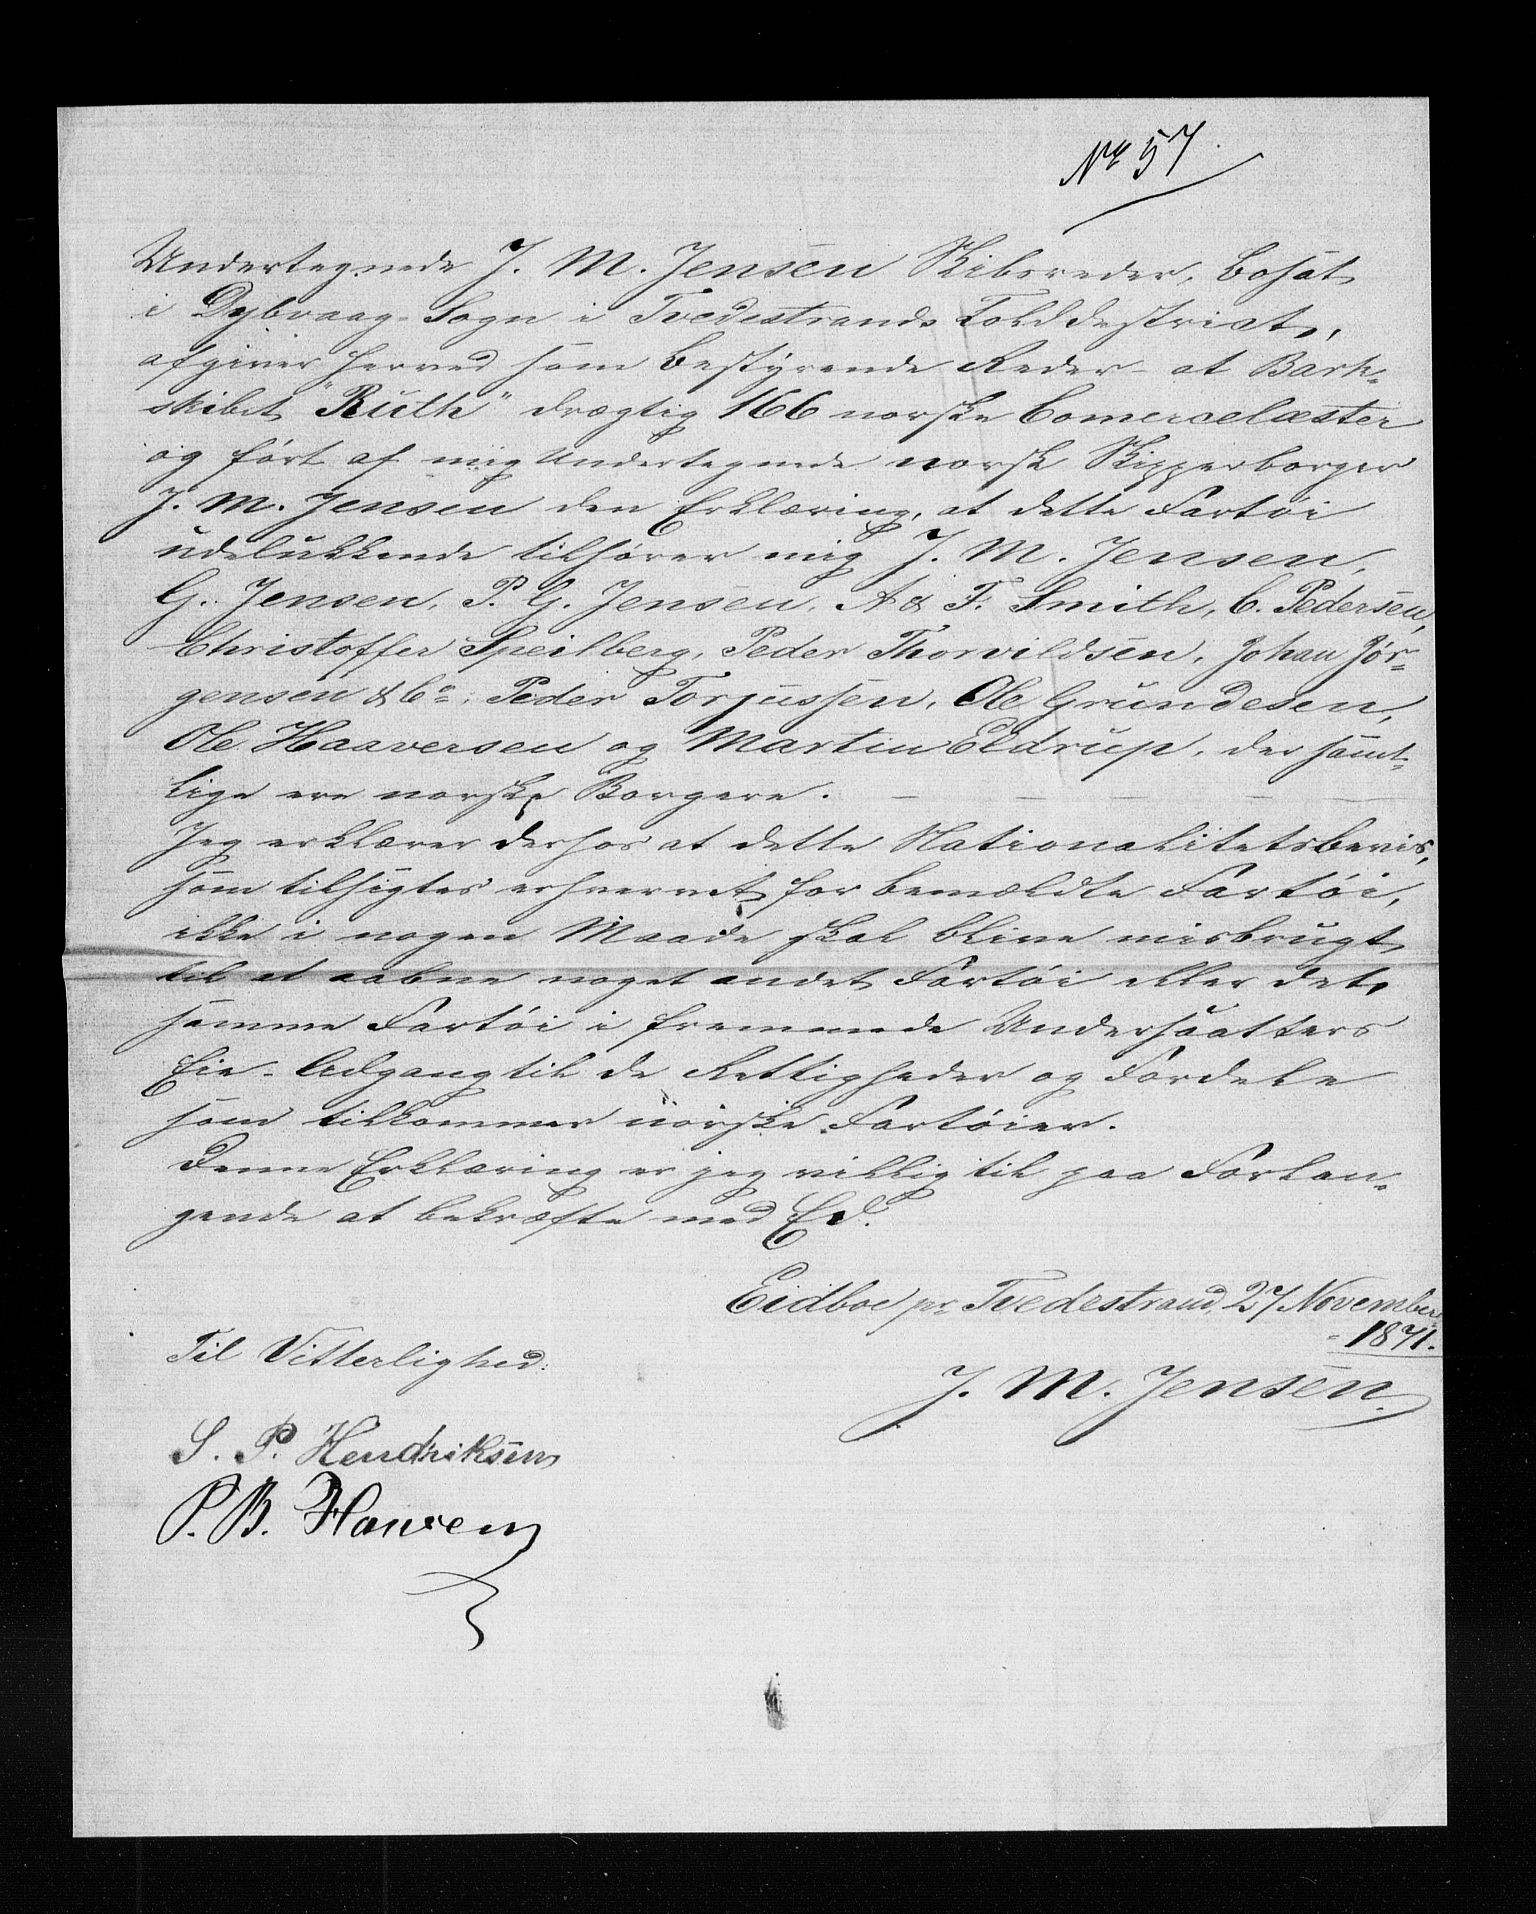 No 57.
Undertegnede J. M. Jensen Skibsreder, bosat
i Dybvaag-Sogn i Tvedestrands Tolddestrict,
afgiver herved som bestyrende Reder at Bark-
skibet "Ruth" drægtig 166 norske Comercelæster
og ført af mig Undertegnede norsk Skipperborger
J. M. Jensen den Erklæring, at dette Fartøi
udelukkende tilhører mig J. M. Jensen,
G. Jensen, P. G. Jensen, A & F. Smith, C. Pedersen,
Christoffer Speilberg, Peder Thorvildsen, Johan Jør-
gensen & Co, Peder Torjussen, Ole Grundesen,
Ole Haaversen og Martin Eldrup, der samt-
lige ere norske Borgere.
Jeg erklærer derhos at dette Nationalitetsbevis,
som tilsigtes erhvervet for bemældte Fartøi,
ikke i nogen Maade skal blive misbrugt
til at aabne noget andet Fartøi eller det
samme Fartøi i fremmede Undersaatters
Eie - Adgang til de Rettigheder og Fordele
som tilkommer norske Fartøier.
Denne Erklæring er jeg villig til paa Forlan-
gende at bekræfte med Ed.
Eidboe pr Tvedestrand, 27 November
1871.
J. M. Jensen
Til Vitterlighed:
S. P. Hendriksen
P. B. Hansen